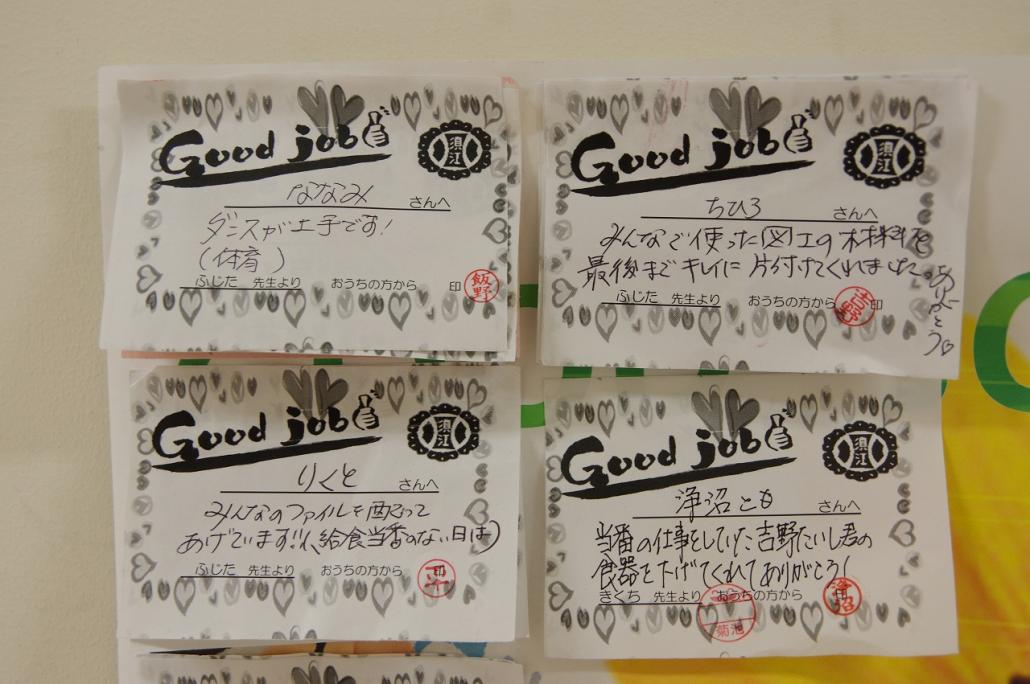 Good job
須江
ななみ さんへ
ダンスが上手です!
(体育)
ふじた 先生より おうちの方から 印 飯野
Good job
須江
ちひろ さんへ
みんなで使った図工の材料を
最後までキレイに片付けてくれました。
ありがとう
ふじた 先生より おうちの方から 印
Good job
須江
りくと さんへ
みんなのファイルを配って
あげています!!(給食当番のない日は)
ふじた 先生より おうちの方から 印
Good job
須江
浄沼とも さんへ
当番の仕事をしていた吉野たいし君の
食器を下げてくれてありがとう!
きくち 先生より おうちの方から
菊池